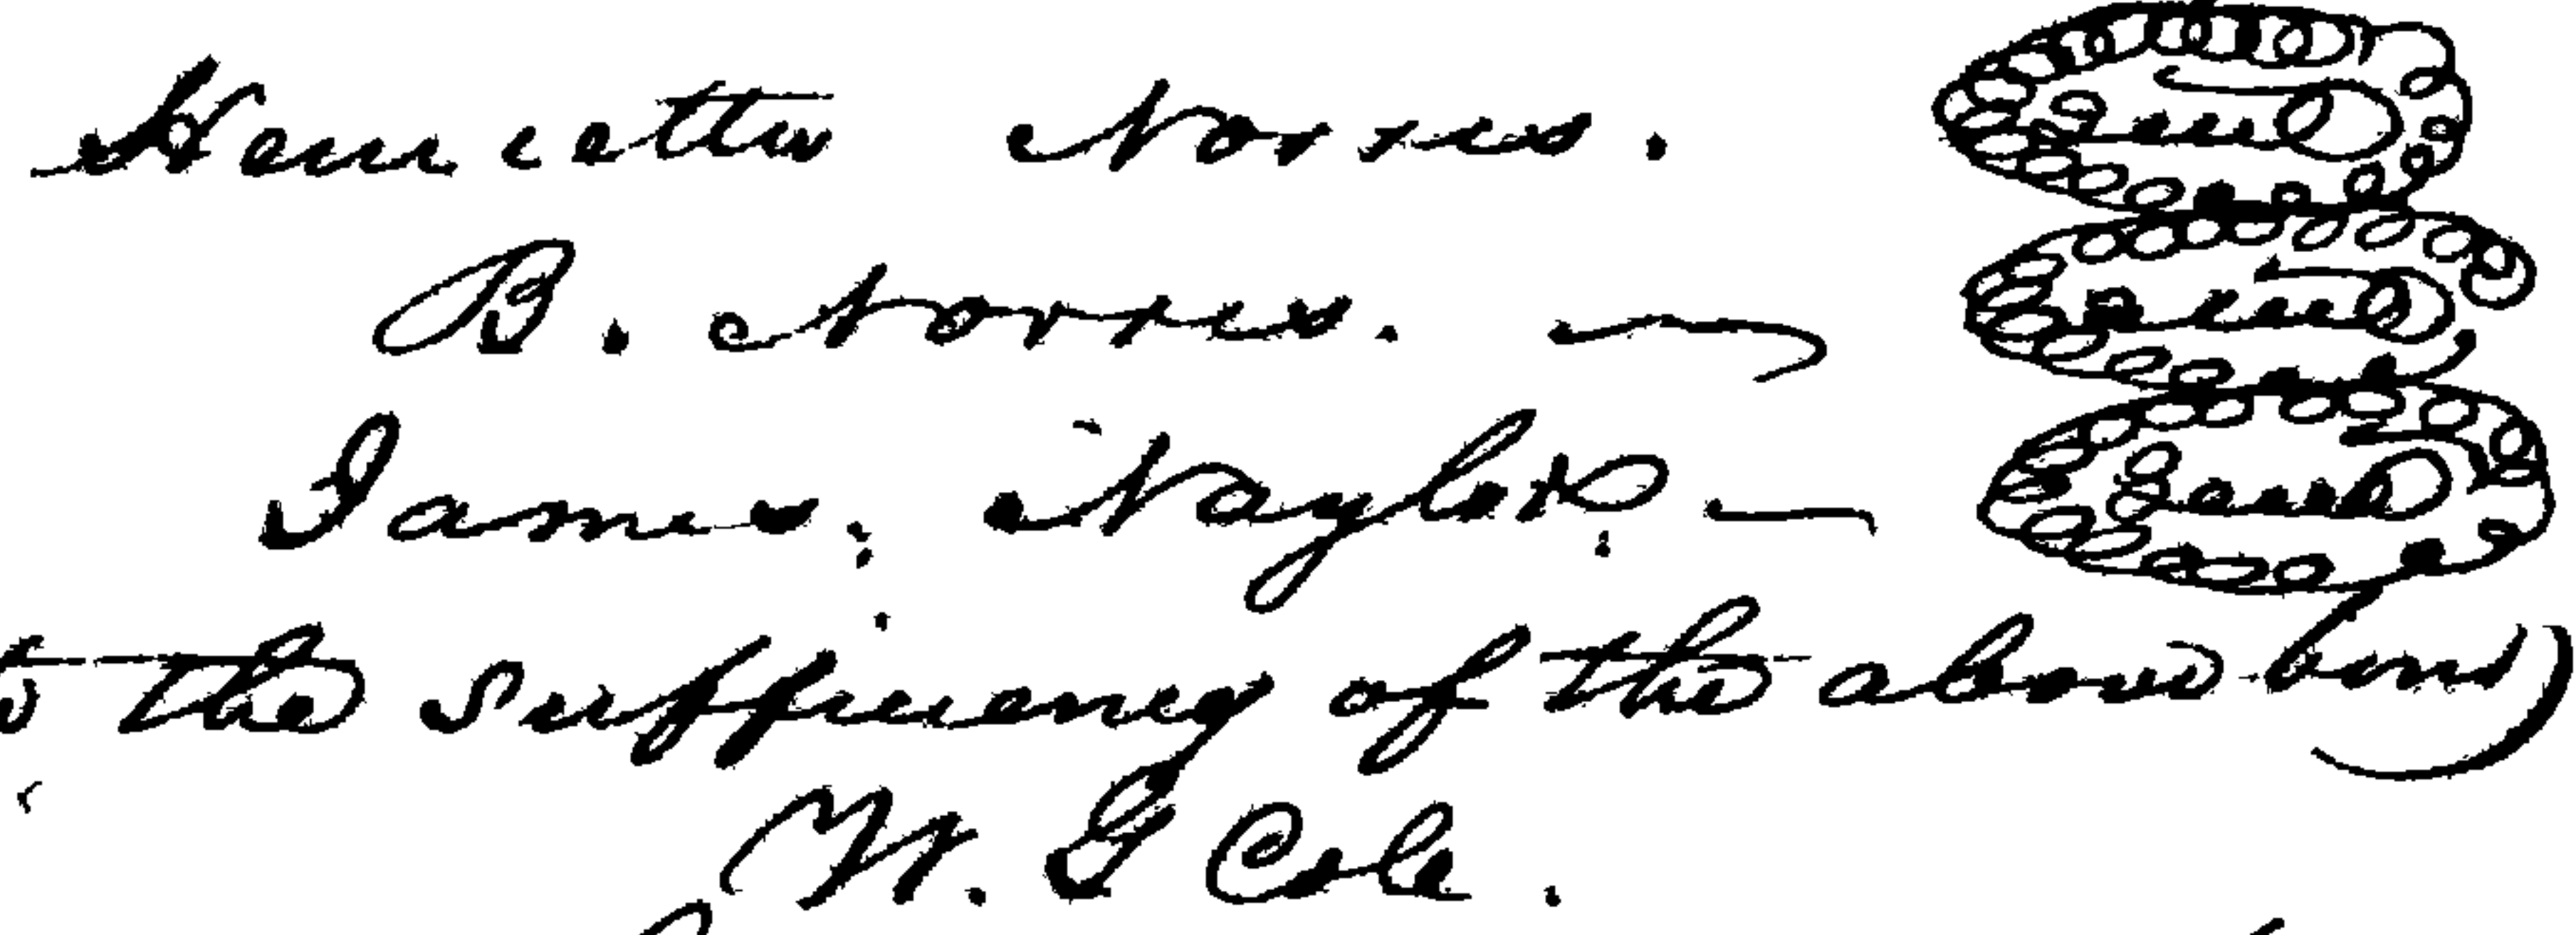 Henrietta Norris. Seal
B. Norris. Seal
James. Naylor. Seal
to the sufficiency of the above bond
W. G Cole.